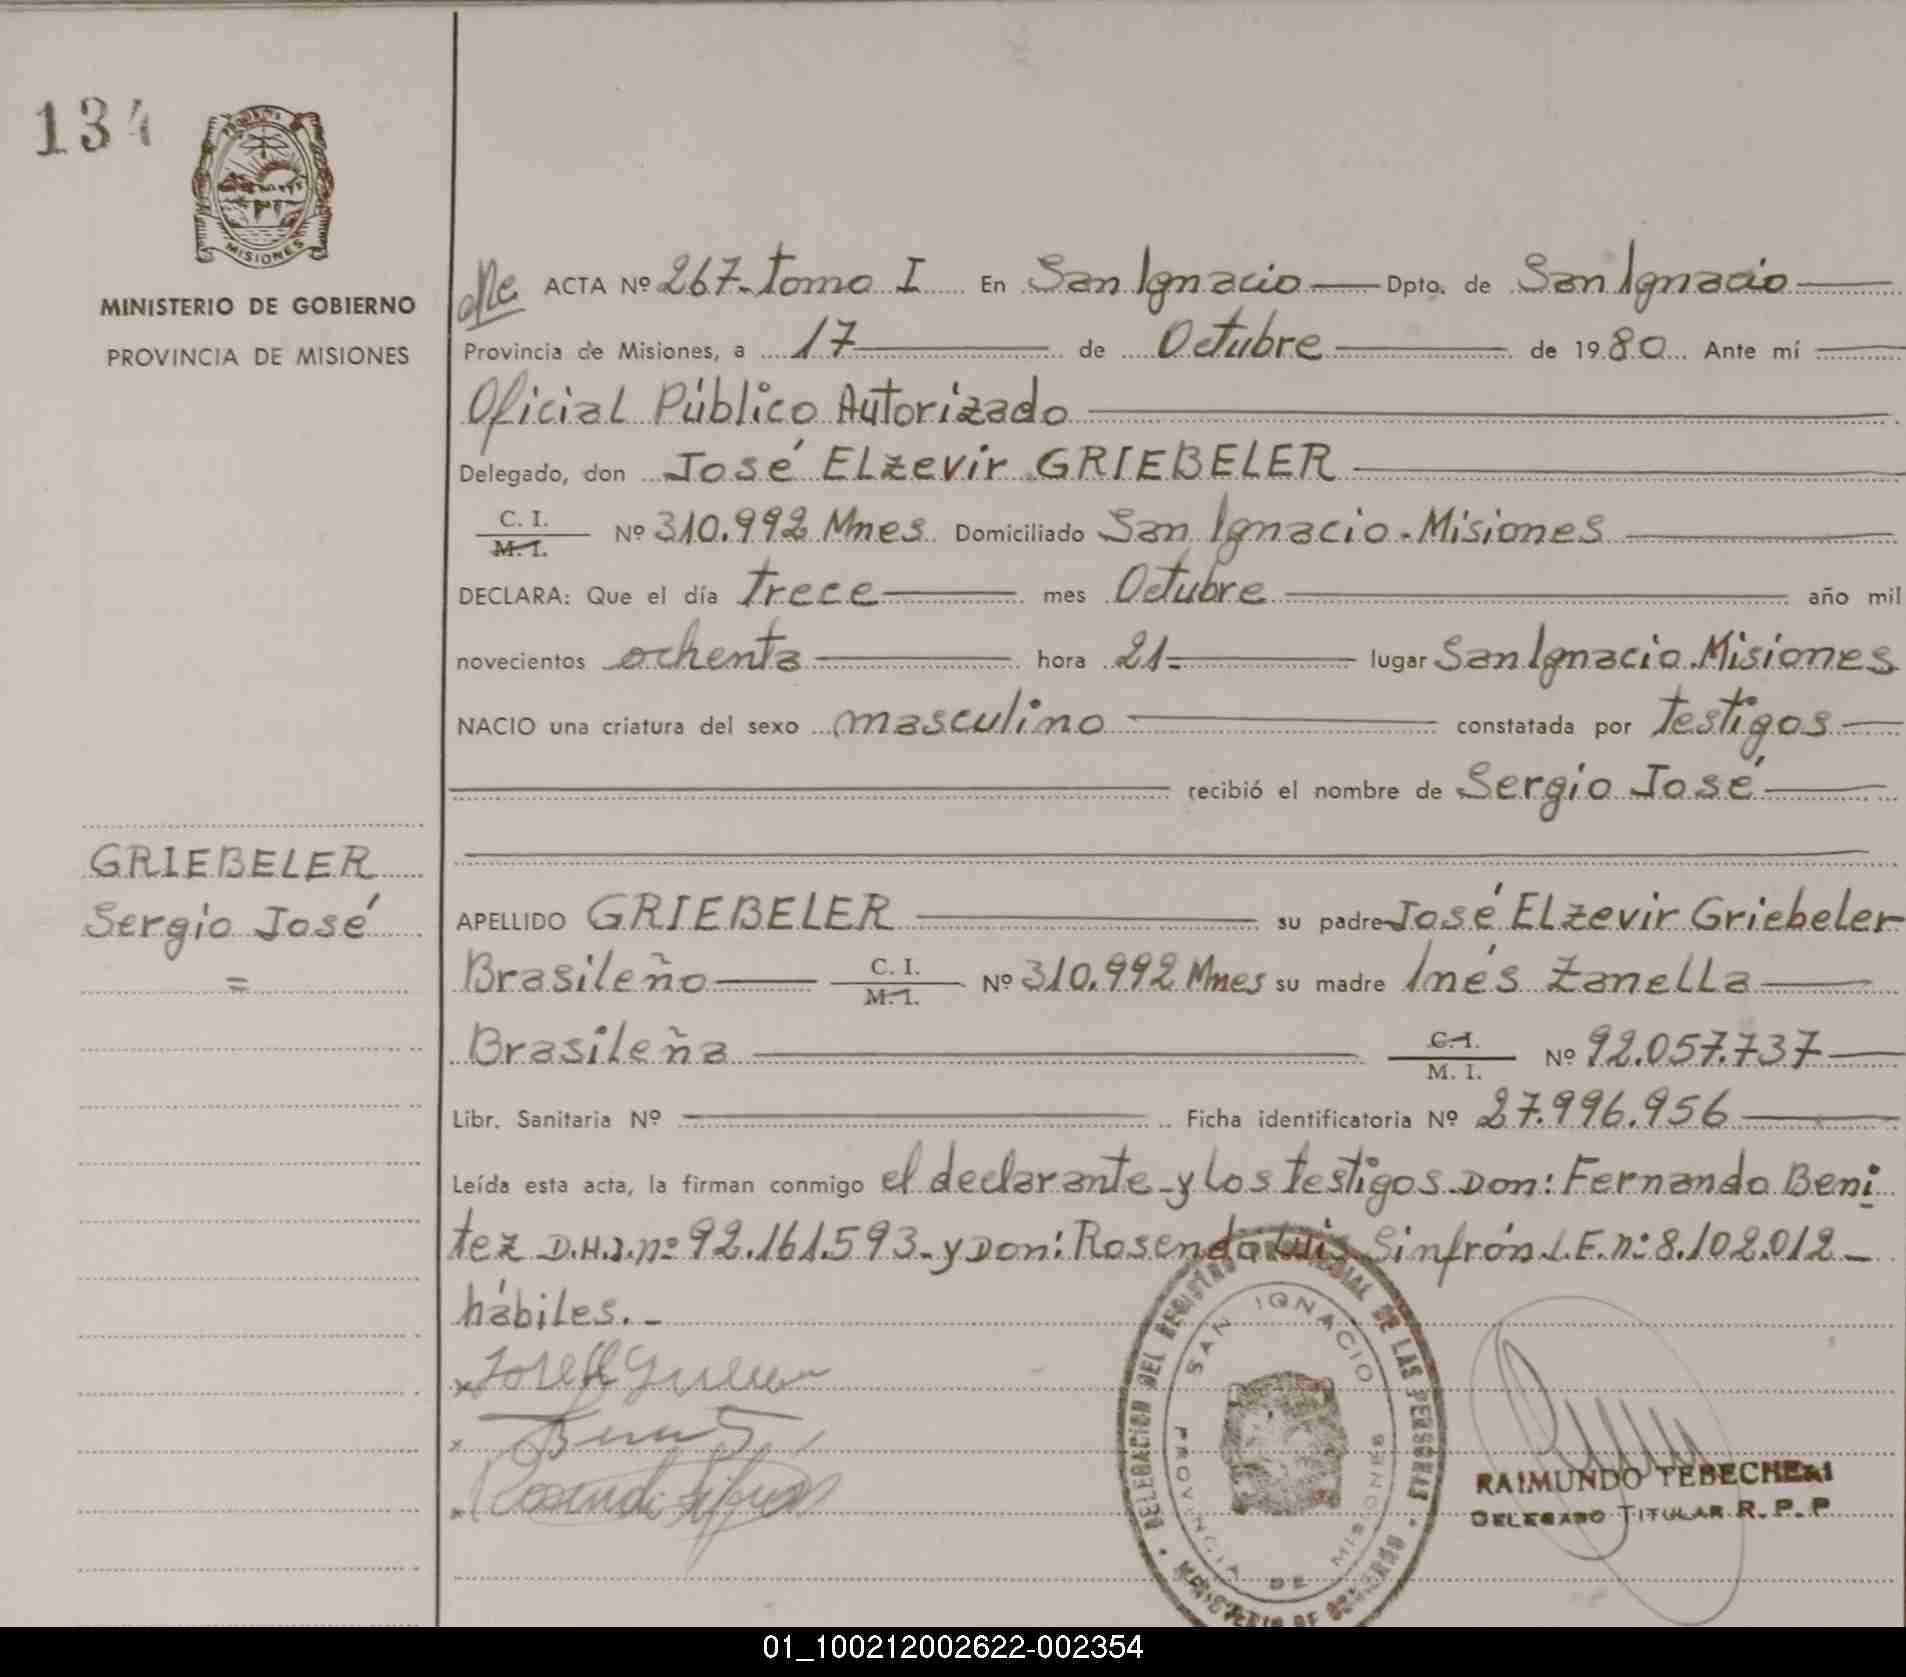 134
MISIONES
MINISTERIO DE GOBIERNO
PROVINCIA DE MISIONES
GRIEBELER
Sergio José
=
ACTA Nº 267.- tomo I En San Ignacio Dpto. de San Ignacio
Provincia de Misiones, a 17 de Octubre de 1980 Ante mí
Oficial Público Autorizado
Delegado, don José ELzevir GRIEBELER
C. I.
M. I. Nº 310.992 Mnes Domiciliado San Ignacio - Misiones
DECLARA: Que el día trece mes Octubre año mil
novecientos ochenta hora 21.- lugar San Ignacio Misiones
NACIO una criatura del sexo masculino constatada por testigos
recibió el nombre de Sergio José
APELLIDO GRIEBELER su padre José ELzevir Griebeler
Brasileño C. I.
M. I. Nº 310.992 Mnes su madre Inés Zanella
Brasileña C. I.
M. I. Nº 92.057.737
Libr. Sanitaria Nº Ficha identificatoria Nº 27.996.956
Leída esta acta, la firman conmigo el declarante y los testigos Don: Fernando Beni
tez D.N.I. nº 92.161.593.- y Don: Rosendo Luis Sinfrón L.E. nº 8.102.012
hábiles.-
DELEGACION DEL REGISTRO PROVINCIAL DE LAS PERSONAS
MINISTERIO DE GOBIERNO
SAN IGNACIO
PROVINCIA DE MISIONES
RAIMUNDO
DELEGADO TITULAR R. P. P
01_100212002622-002354